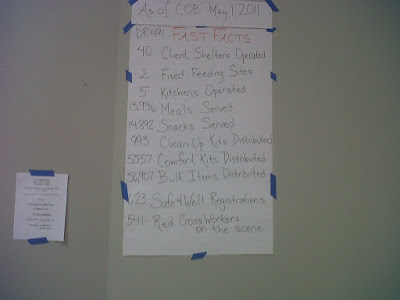 As of COB May 1, 2011
DR491 FAST FACTS
40 Client Shelters Operated
2 Fixed Feeding Sites
5 Kitchens Operated
13,936 Meals Served
14,892 Snacks Served
995 Clean-Up Kits Distributed
5557 Comfort Kits Distributed
56,907 Bulk Items Distributed
623 Safe+Well Registrations
541 Red Cross Workers
on the scene